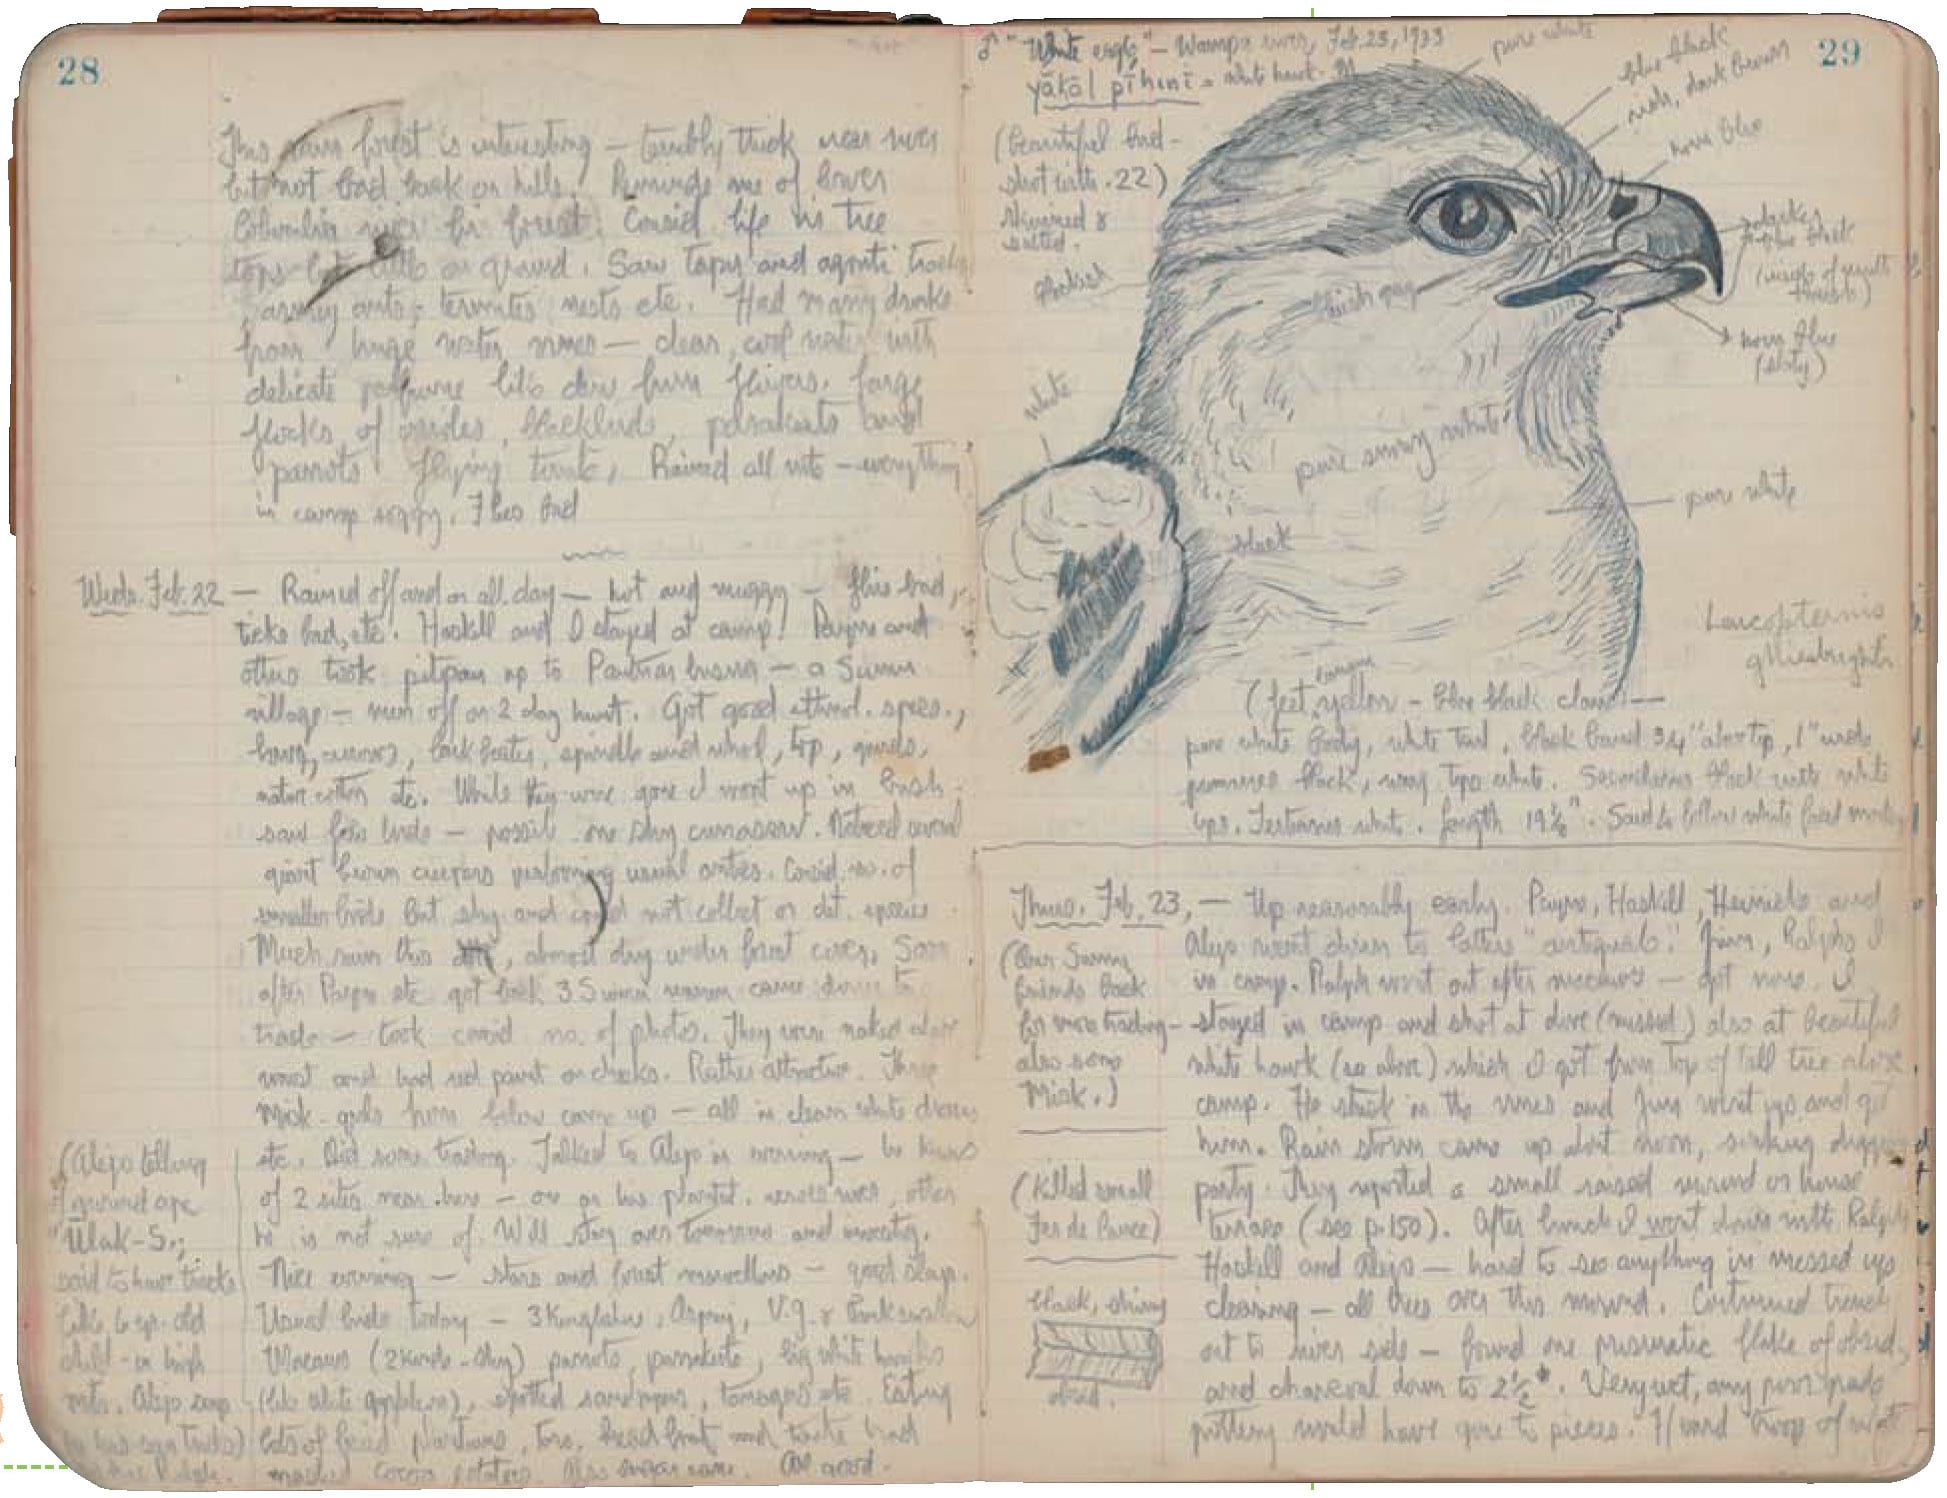 28
This rain forest is interesting — terribly thick near river
but not bad back on hills. Reminds me of lower
Columbia river fir forest. Consid. life in tree
tops but little on ground. Saw tapir and agouti tracks
army ants, termites nests etc. Had many drinks
from huge water vines — clear, cool water with
delicate perfume like dew from flowers. Large
flocks of orioles, blackbirds, parakeets and
parrots flying Rained all nite — everything
in camp soggy. Flies bad
Weds. Feb. 22 — Rained off and on all day — hot and muggy — flies bad,
ticks bad, etc. Haskell and I stayed at camp. Payne and
others took pitpan up to — a Sumu
village — men off on 2 day hunt. Got good ethnol. specs.,
bark beater, spindle and whorl, top, gourds,
native cotton etc. While they were gone I went up in bush —
saw few birds — possib. one shy curassow. Noticed several
giant brown creepers performing usual antics. Consid. no. of
smaller birds but shy and could not collect or det. species.
Much rain this almost dry under forest cover. Soon
after Payne etc got back 3 Sumu women came down to
trade — took consid no. of photos. They were naked above
waist and had red paint on cheeks. Rather attractive. Three
Misk. girls from below came up — all in clean white dresses
etc. Did some trading. Talked to Alejo in evening — he knows
of 2 sites near here — one on his plantat. across river, other
he is not sure of. Will stay over tomorrow and investig.
Nice evening — stars and forest marvellous — good sleep.
Usual birds today — 3 Kingfishers, Osprey, V.g. &
Macaws (2 kinds - shy) parrots, parakeets, big white hawks
spotted sandpipers, tanagers etc. Eating
lots of fried plantains, bread fruit and
mashed potatoes. Also sugar cane. All good.
(Alejo telling
of ground ape
"Ulak-S.;
said to have tracks
like 6 yr. old
child - in high
mts. Alejo says
he has seen tracks)
♂ "White eagle" — Wampu river, Feb. 23, 1933
yākāl pīhinī = white hawk - M
29
(beautiful bird -
shot with .22)
Skinned &
salted.
pure white
blue black
iris, dark brown
horn blue
darker
blue black
horn blue
(slaty)
bluish gray
white
pure snowy white
pure white
black
Leucopternis
ghiesbreghti
(feet yellow — blue black claws —
pure white body, white tail, black band 3/4" above tip, 1" wide
primaries black, very tips white. Secondaries black with white
tips. Tertiaries white. Length 19½". Said to follow white faced monkeys
Thurs. Feb. 23, — Up reasonably early. Payne, Haskell, and
Alejo went down to latter's "antiguals." Jim, Ralph & I
in camp. Ralph went out after macaws — got none. I
stayed in camp and shot at dove (missed) also at beautiful
white hawk (see above) which I got from top of tall tree above
camp. He stuck in the vines and Jim went up and got
him. Rain storm came up about noon, soaking digging
party. They reported a small raised mound or house
terrace (see p. 150). After lunch I went down with Ralph,
Haskell and Alejo — hard to see anything in messed up
clearing — all trees over this mound. Continued trench
out to river side — found one prismatic flake of obsid.,
and charcoal down to 2½". Very wet, any poor grade
pottery would have gone to pieces. Heard troop of
(Our Sumu
friends back
for more trading —
also some
Misk.)
(Killed small
Fer de Lance)
black, shiny
obsid.